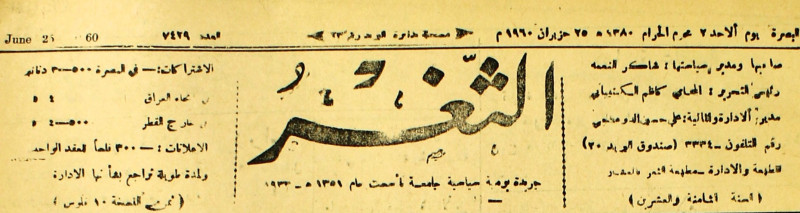 البصرة يوم الاحد ٢ محرم الحرام ١٣٨٠ ه ٢٥ حزيران ١٩٦٠ م
العدد ٧٤٢٩
June 25 60
صاحبها ومدير سياستها: شاكر النعمه
رئيس التحرير: المحامي كاظم
مدير الادارة والمالية: علي
رقم التلفون – ٣٣٣٤ (صندوق البريد ٢٠)
للطبعة والادارة – مطبعة الثغر
(السنة الثامنة والعشرين)
الثَّغْر
جريدة يومية سياسية جامعة تأسست عام ١٣٥١ ه – ١٩٣٣
الاشتراكات: – في البصرة ٥٠٠–٣ دنانير
انحاء العراق ٤
خارج القطر ٥٠٠–٤
الاعلانات: – ٣٠٠ فلساً للعقد الواحد
ولمدة طويلة تراجع بشأنها الادارة
(ثمن النسخة ١٠ فلوس)